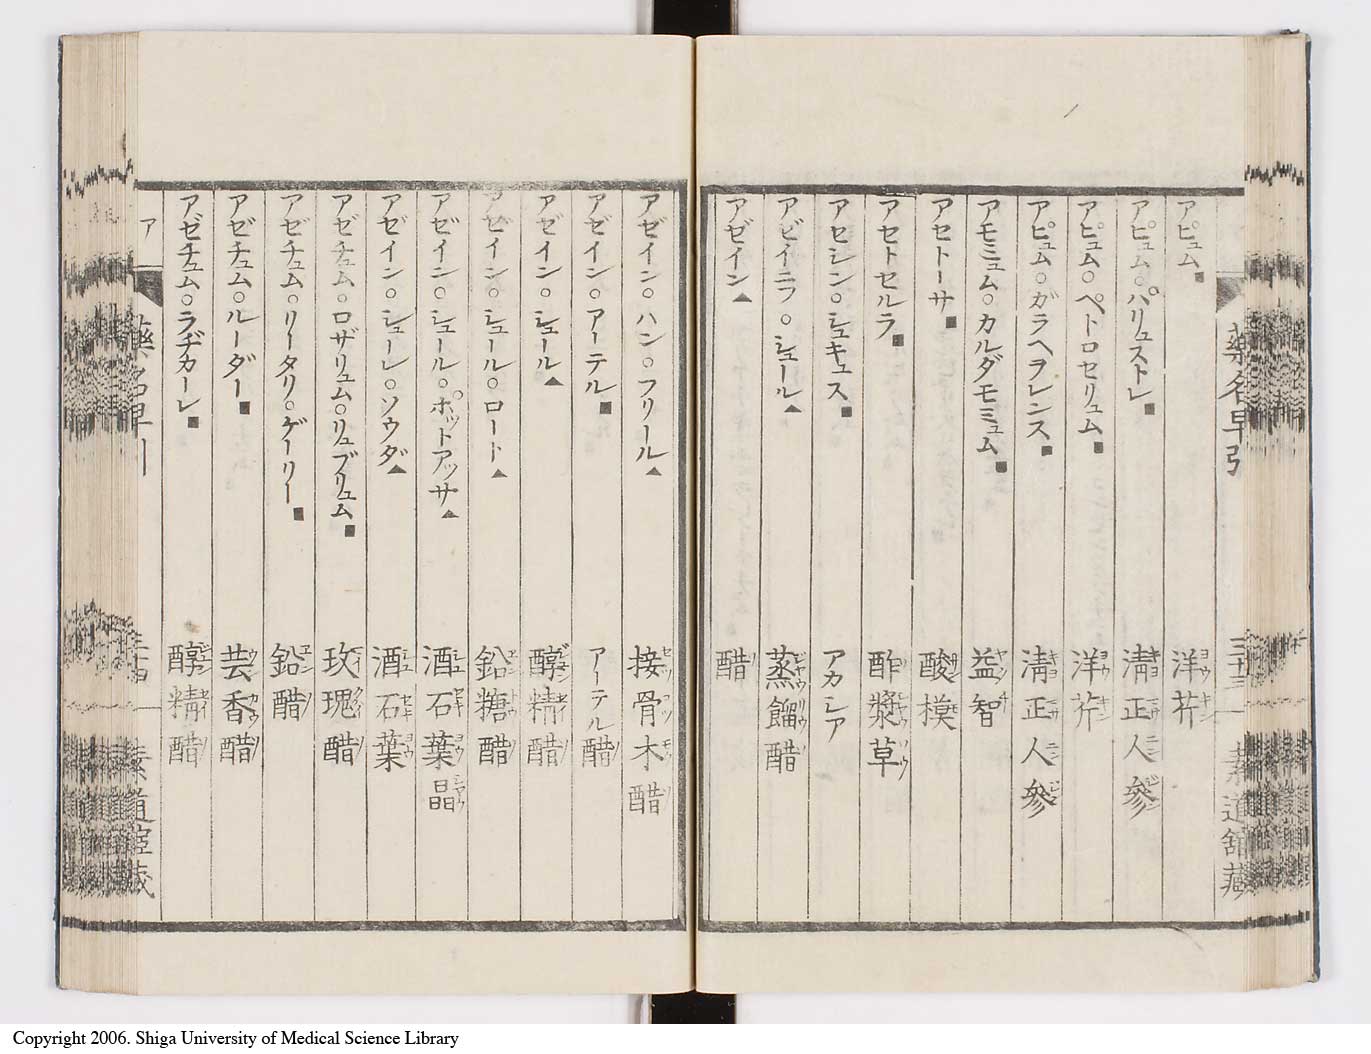 藥名早引
アピュム■ 洋芹
アピュム○パリュストレ■ 淸正人參
アピュム○ペトロセリュム■ 洋芹
アピュム○ガラヘヲレンス■ 淸正人參
アモミュム○カルダモミュム■ 益智
アセトーサ■ 酸模
アセトセルラ■ 酢漿草
アセシン○シュキュス■ アカシア
アビイニフ○シュール▲ 蒸餾醋
アゼイン▲ 醋
アゼイン○ハン○フリール▲ 接骨木醋
アゼイン○アーテル■ アーテル醋
アゼイン○シュール▲ 醇精醋
アゼイン○シュール○ロート▲ 鉛糖醋
アゼイン○シュール○ポットアッサ▲ 酒石葉晶
アゼイン○シューレ○ソウダ▲ 酒石葉
アゼチュム○ロザリュム○リュブリュム■ 玫瑰醋
アゼチュム○リータリ○ゲーリー■ 鉛醋
アゼチュム○ルーダー■ 芸香醋
アゼチュム○ラヂカーレ■ 醇精醋
ア
Copyright 2006. Shiga University of Medical Science Library